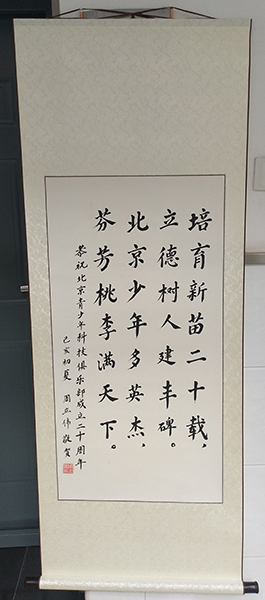 培育新苗二十载，
立德树人建丰碑。
北京少年多英杰，
芬芳桃李满天下。
恭祝北京青少年科技俱乐部成立二十周年
己亥初夏 周立伟敬贺